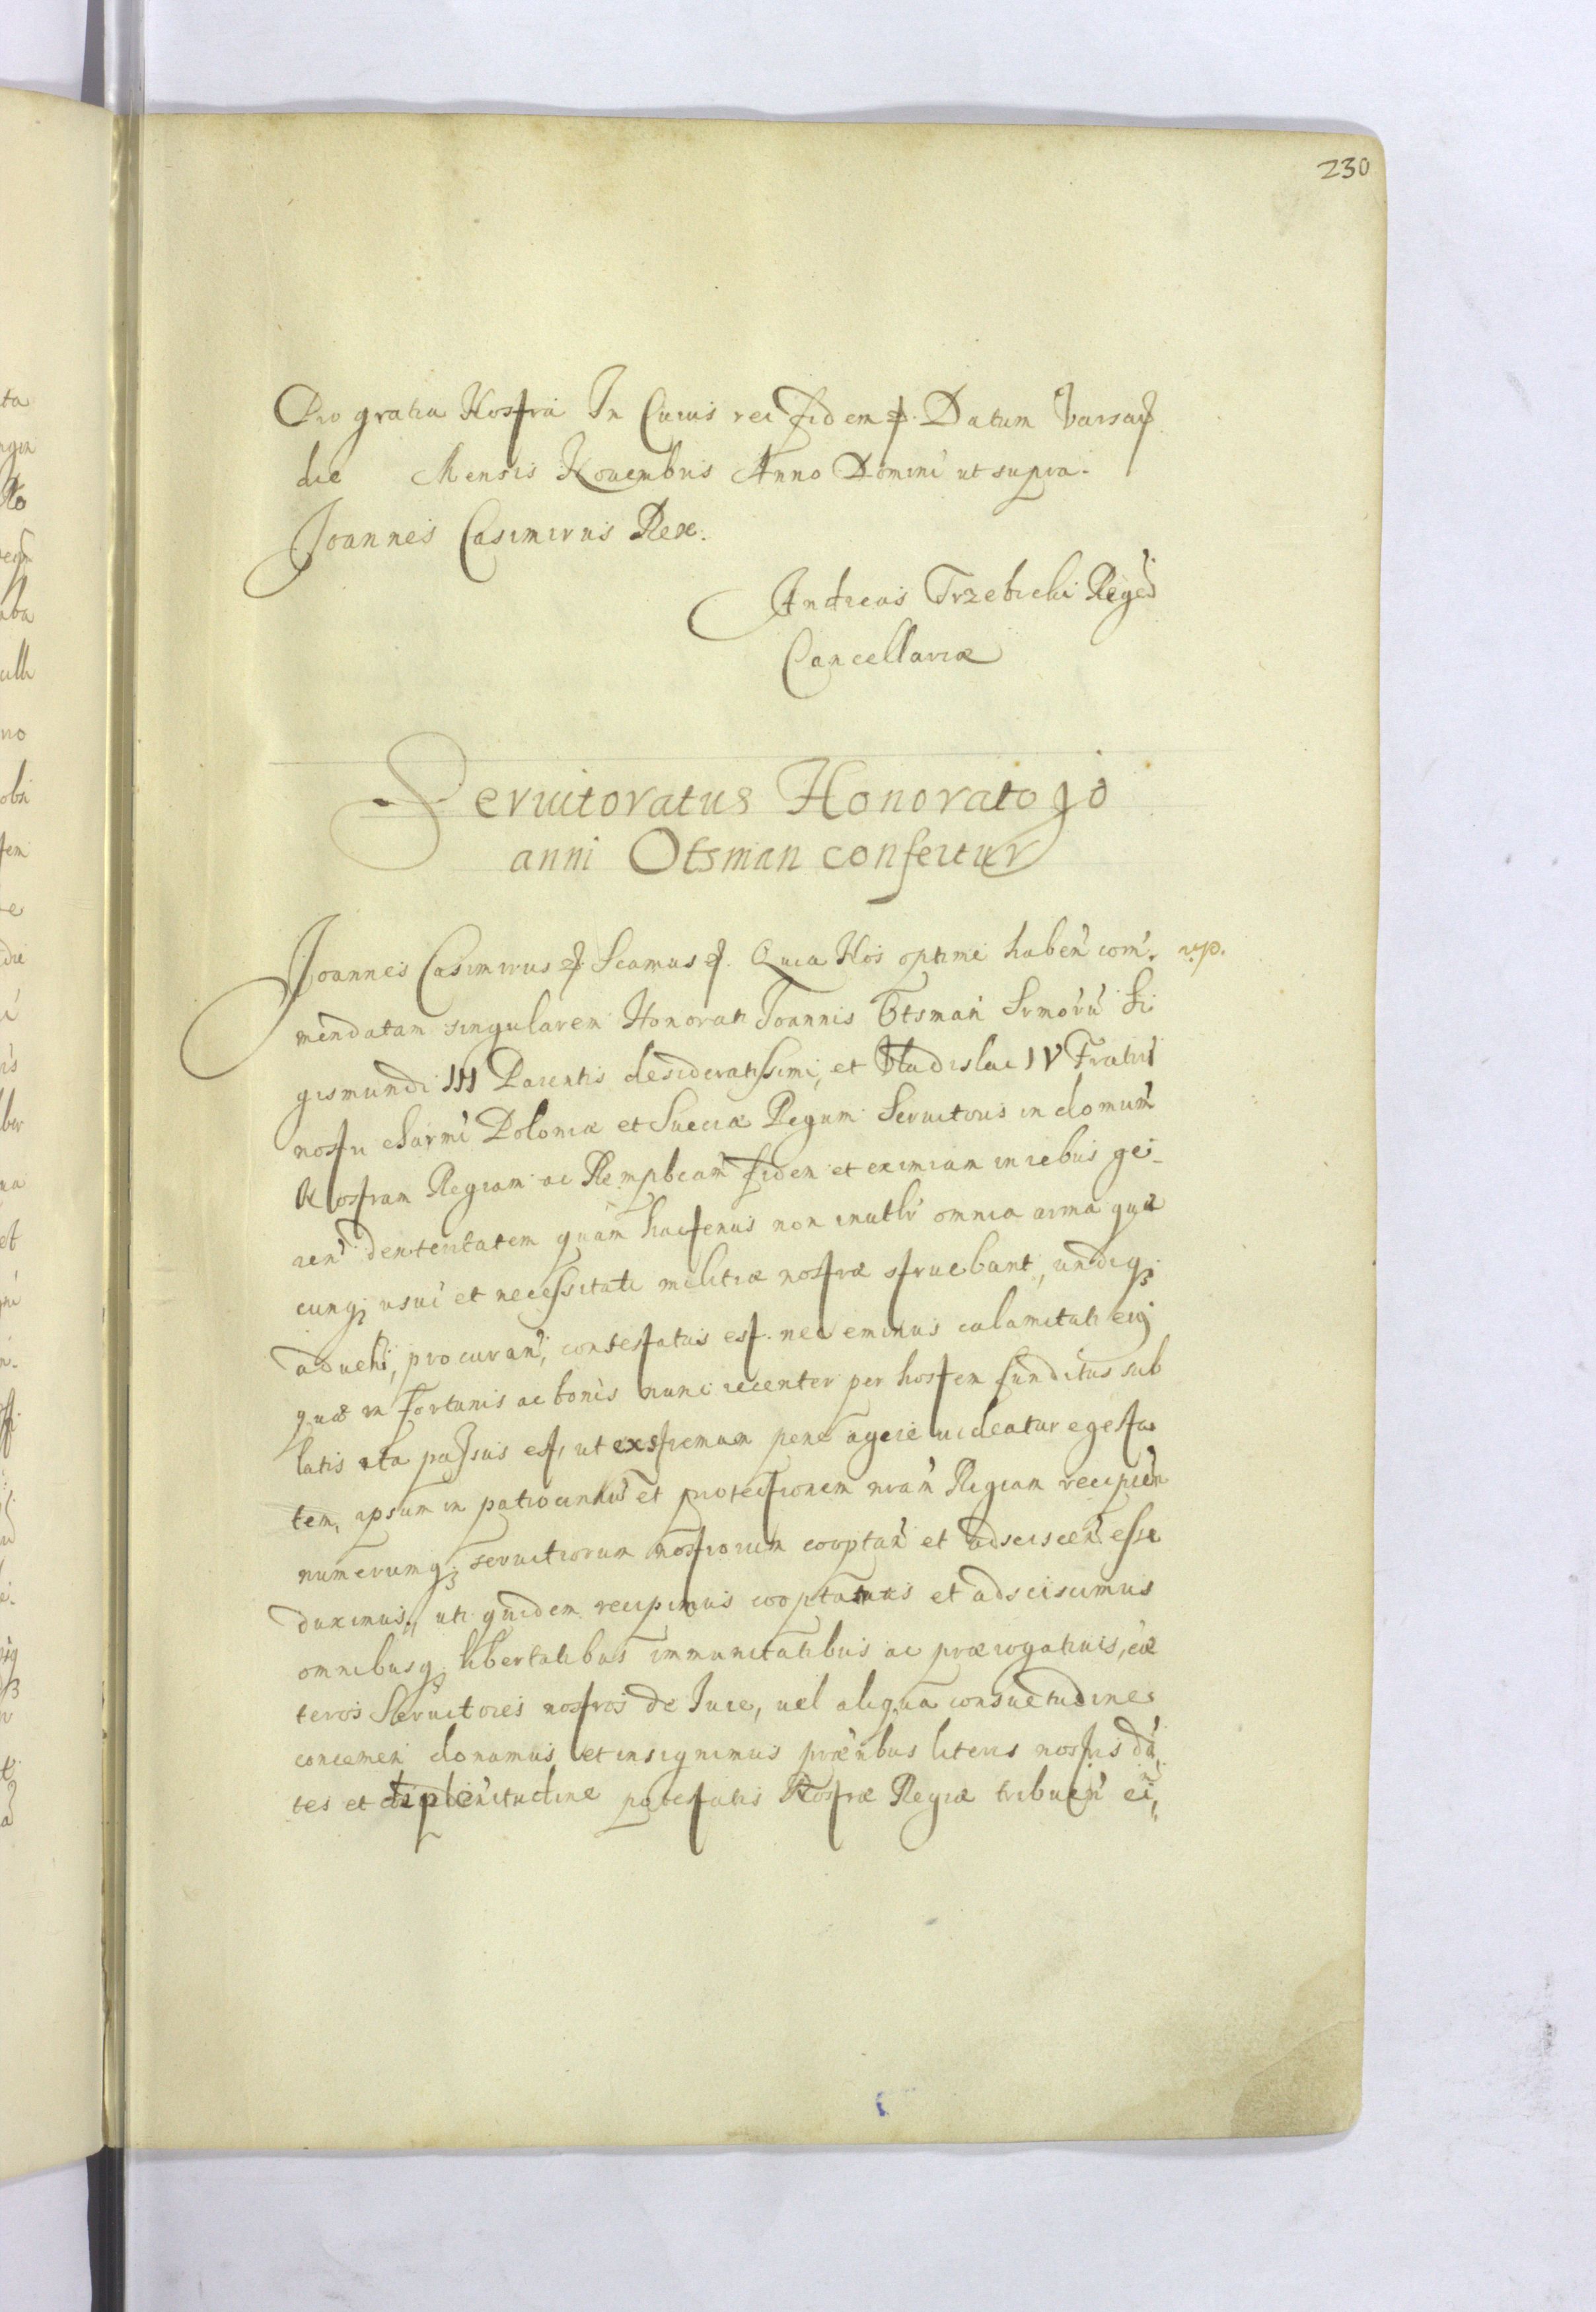 230
Pro gratia Nostra In Cuius rei fidem etc. Datum Varsav
die Mensis Novembris Anno Domini ut supra.
Joannes Casimirus Rex.
Andreas Trzebicki Regēs
Cancellariæ
Servitoratus Honorato Jo
anni Otsman confertur
Joannes Casimirus etc. Scamus etc. Quia Nos optime haben̄ com̄
mendatam singularem Honorati Joannis Otsman Srmorū Si
gismundi III Parentis desideratissimi, et Vladislai IV Fratris
nostri charmi Poloniæ et Sueciæ Regum Servitoris in domum
Nostram Regiam ac Rempbcam fidem et eximiam in rebus ge-
ren̄ dexteritatem quam hactenus non inutlr̄ omnia arma quæ
cunq; usui et necessitati militiæ nostræ struebant, undiq;
advehi, procuran̄, contestatus est. nec eminus calamitati eiq
quæ in fortunis ac bonis nunc recenter per hostem funditus sub
latis ita passus est, ut extremam pene agere videatur egesta
tem, ipsum in patrocinium et protectionem nrām Regiam recipien
numerumq; servitorum nostrorum cooptan̄ et adsciscen̄ esse
duximus, uti quidem recipimus cooptamus et adsciscimus
omnibusq; libertatibus immunitatibus ac prærogativis, cæ
teros Servitores nostros de Jure, vel aliqua consuetudine
concernen̄ donamus et insignimus præntibus literis nostris dā
tes et de plenitudine potestatis Nostræ Regiæ tribuen̄ ei,